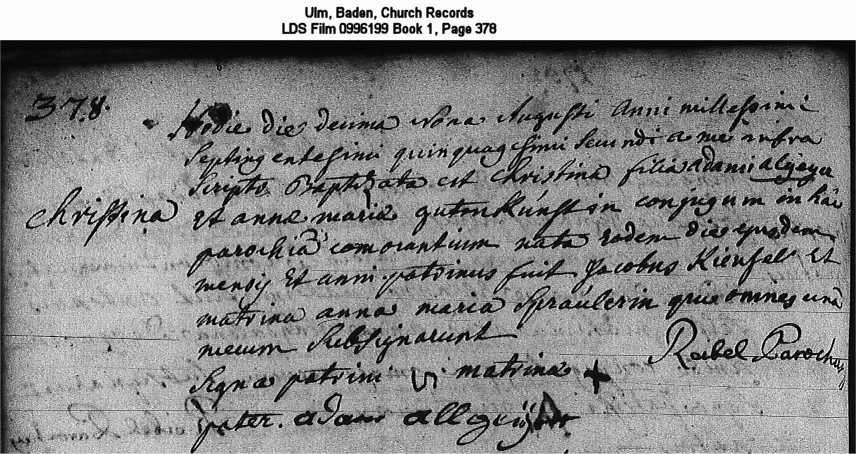 Ulm, Baden, Church Records
LDS Film 0996199 Book 1, Page 378
378.
Hodie die decima nona Augusti anni millesimi
septingentesimi quinquagesimi secundi a me infra
scripto Baptizata est Christina filia adami algeyer
Christina
Et anna maria gutenkünstin conjugum in hac
parochia comorantium nata eodem die ejusdem
mensis Et anni patrinus fuit Jacobus Kienfel Et
matrina anna maria Spraülerin qui omnes una
mecum subsignarunt
Reibel Parochus
Signa patrini matrina +
pater. adam allgeÿer